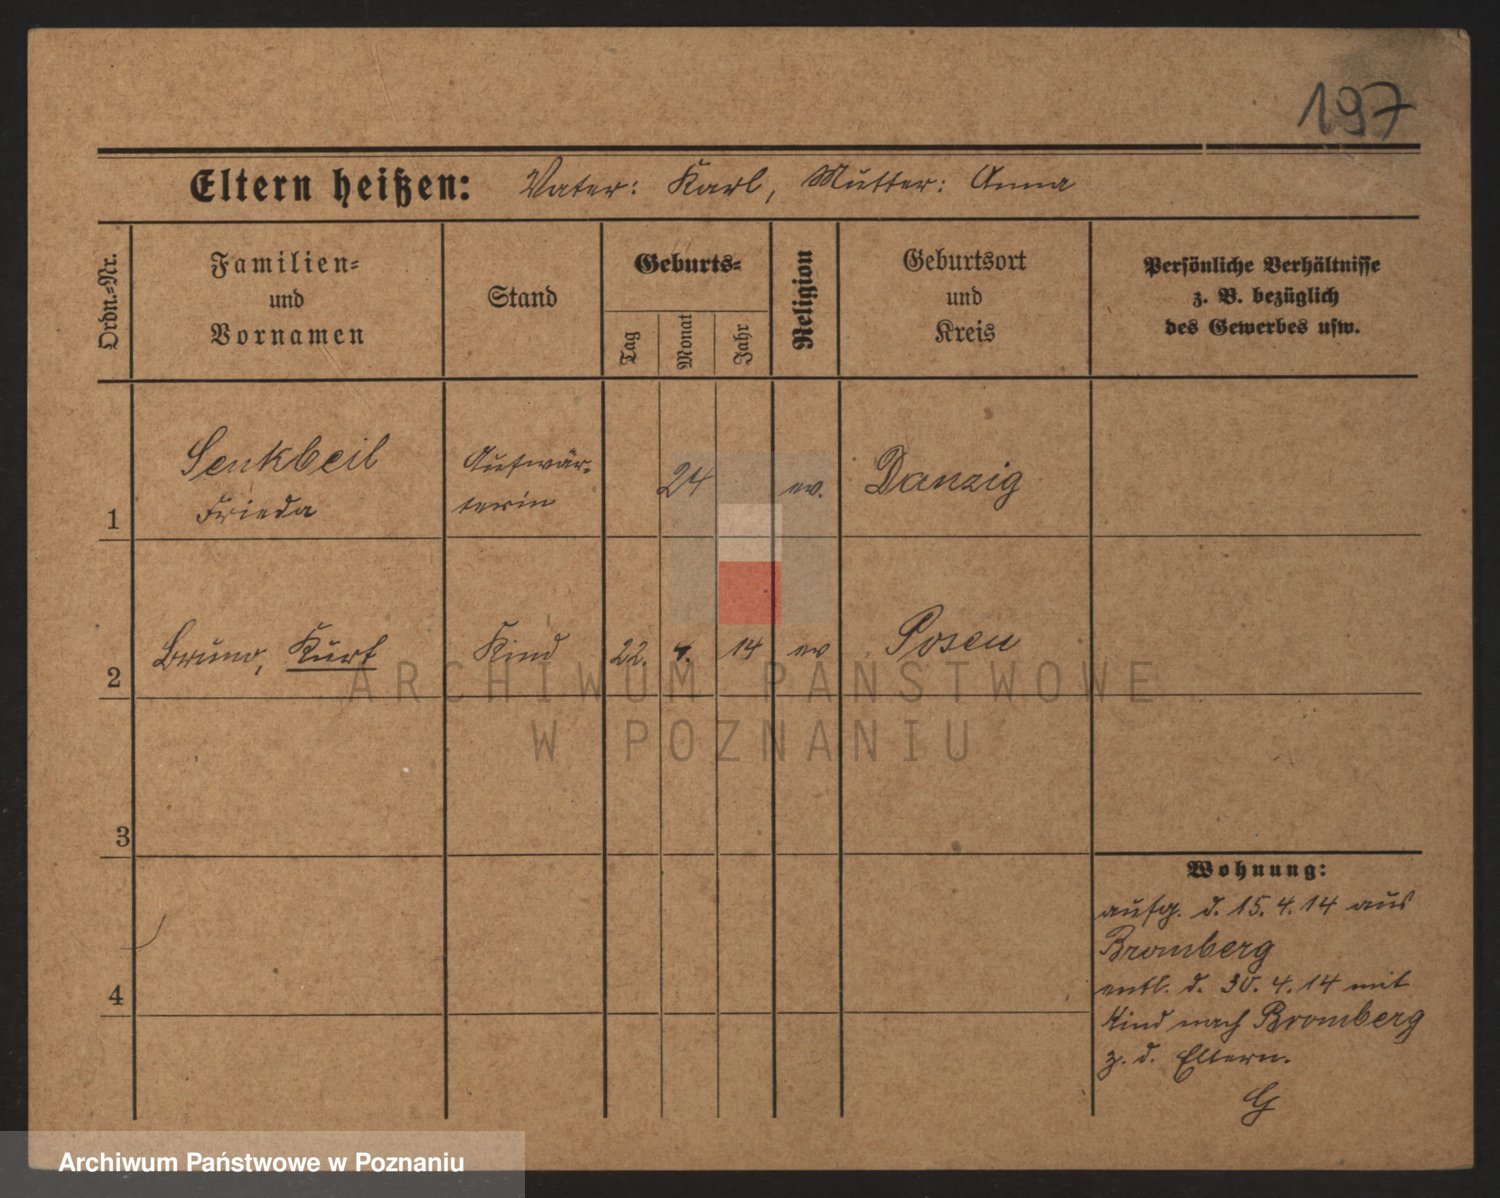 197
Eltern heißen: Vater: Karl, Mutter: Anna
Ordn.-Nr.
Familien-
und
Vornamen
Stand
Geburts-
Tag
Monat
Jahr
Religion
Geburtsort
und
Kreis
Persönliche Verhältnisse
z. B. bezüglich
des Gewerbes usw.
1
Senkbeil
Frieda
Aufwär-
terin
24
ev.
Danzig
2
Bruno, Kurt
Kind
22. 4. 14
ev
Posen
ARCHIWUM PAŃSTWOWE
W POZNANIU
3
4
Wohnung:
aufg. d. 15. 4. 14 aus
Bromberg
entl. d. 30. 4. 14 mit
Kind nach Bromberg
z. d. Eltern.
G
Archiwum Państwowe w Poznaniu